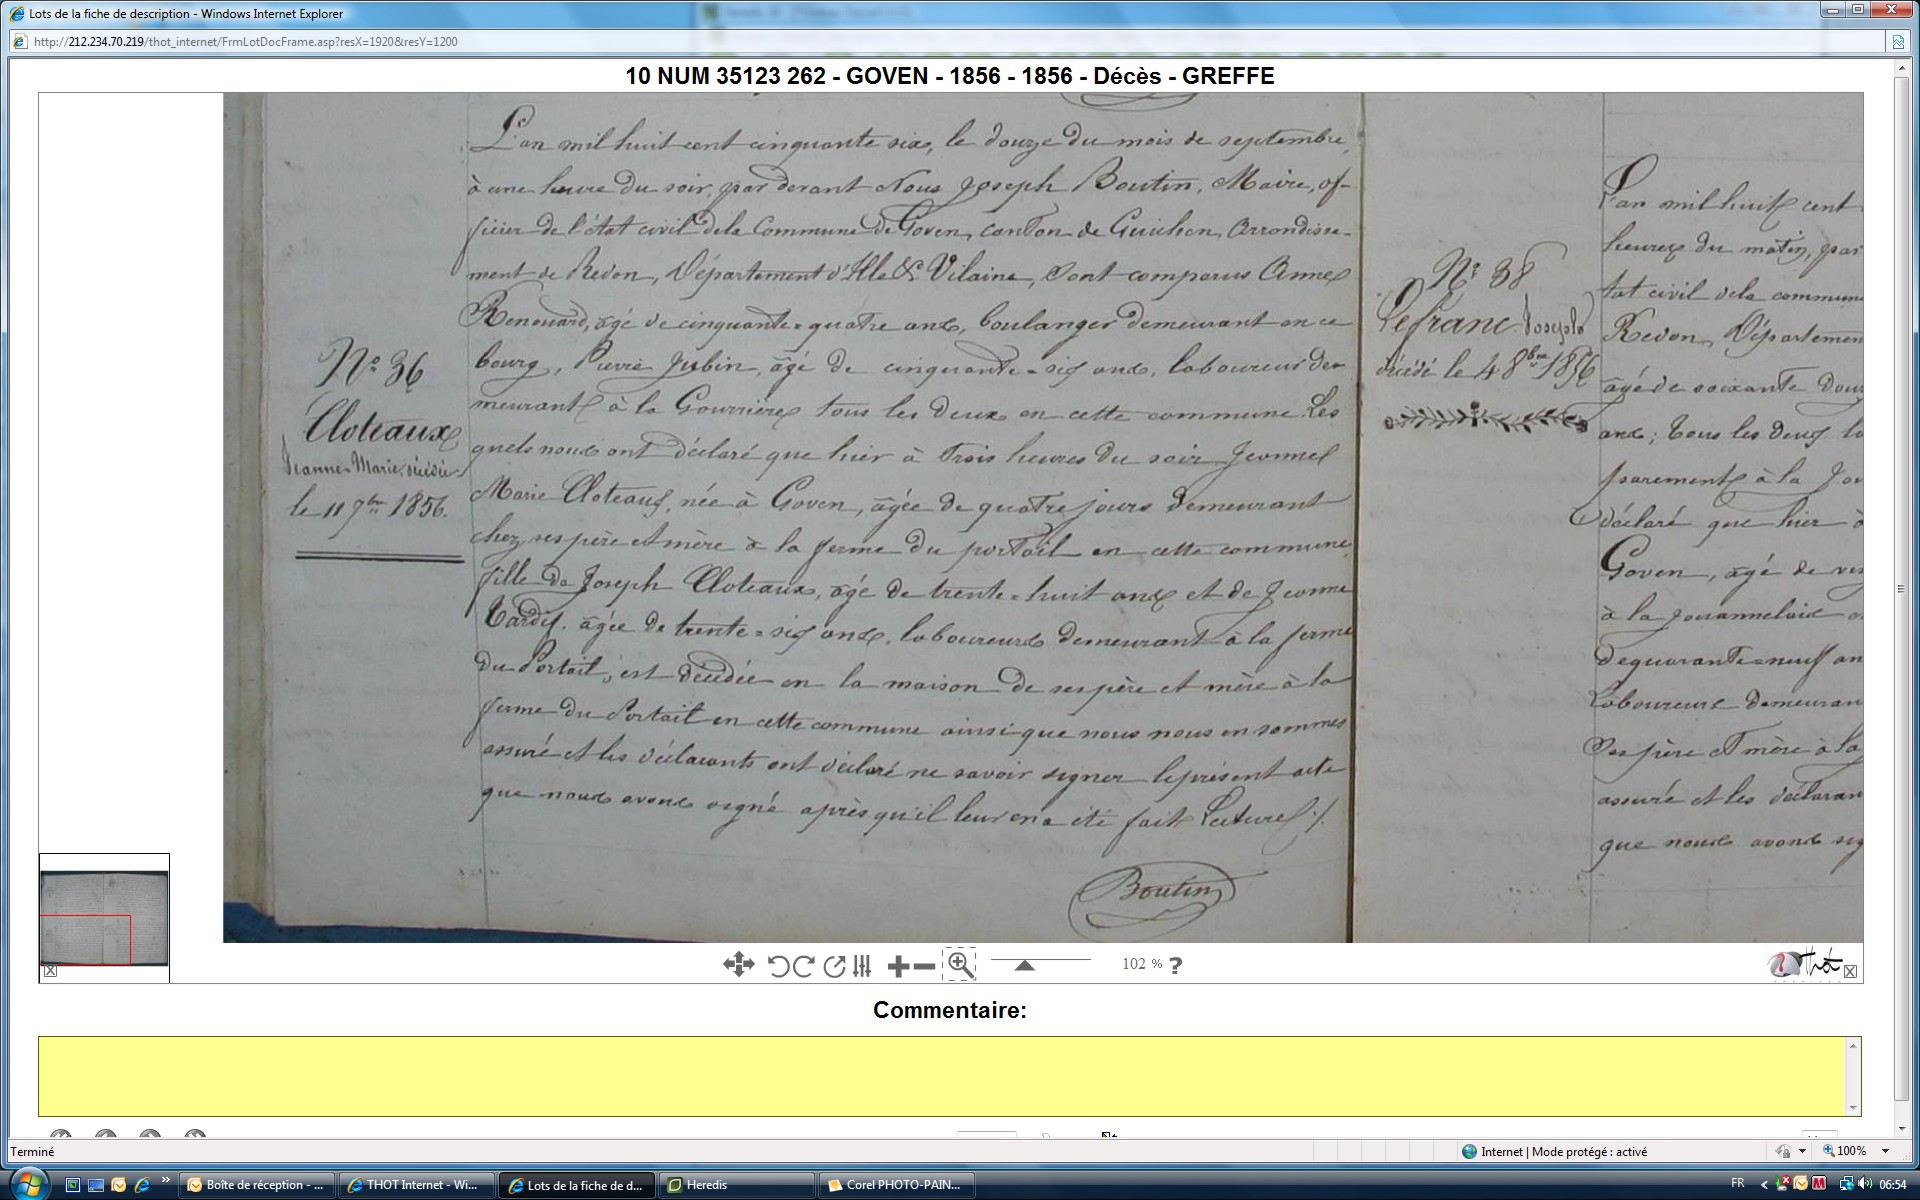 Lots de la fiche de description - Windows Internet Explorer
http://212.234.70.219/thot_internet/FrmLotDocFrame.asp?resX=1920&resY=1200
10 NUM 35123 262 - GOVEN - 1856 - 1856 - Décès - GREFFE
N° 36
Cloteaux
Jeanne-Marie, décédée
le 11 7bre 1856.
L'an mil huit cent cinquante six, le douze du mois de septembre,
à une heure du soir, par devant Nous Joseph Boutin, Maire, of-
ficier de l'état civil de la Commune de Goven, canton de Guichen, Arrondisse-
ment de Redon, Département d'Ille & Vilaine, Sont comparus Anne
Renouard, âgé de cinquante-quatre ans, boulanger demeurant en ce
bourg, Pierre Jubin, âgé de cinquante-six ans, laboureur de-
meurant à la Gourrière tous les deux en cette commune. Les
quels nous ont déclaré que hier à trois heures du soir Jeanne
Marie Cloteaux, née à Goven, âgée de quatre jours demeurant
chez ses père et mère à la ferme du portail en cette commune,
fille de Joseph Cloteaux, âgé de trente-huit ans et de Jeanne
Tardif, âgée de trente-six ans, laboureurs demeurant à la ferme
du Portail, est décédée en la maison de ses père et mère à la
ferme du Portail en cette commune ainsi que nous nous en sommes
assuré et les déclarants ont déclaré ne savoir signer le présent acte
que nous avons signé après qu'il leur en a été fait Lecture ./.
Boutin
N° 38
Lefranc Joseph
décédé le 4 8bre 1856
L'an mil huit cent
heures du matin, par
tat civil de la commune
Redon, Département
âgé de soixante douz
ans; tous les deux la
parement à la Jou
déclaré que hier à
Goven, âgé de vin
à la Jouannelais
de quarante-neuf an
Laboureurs demeuran
ses père et mère à la
assuré et les déclaran
que nous avons sig
102 % ?
Thot
Commentaire:
Terminé
Internet | Mode protégé : activé
100%
Boîte de réception - ...
THOT Internet - Wi...
Lots de la fiche de d...
Heredis
Corel PHOTO-PAIN...
FR
06:54